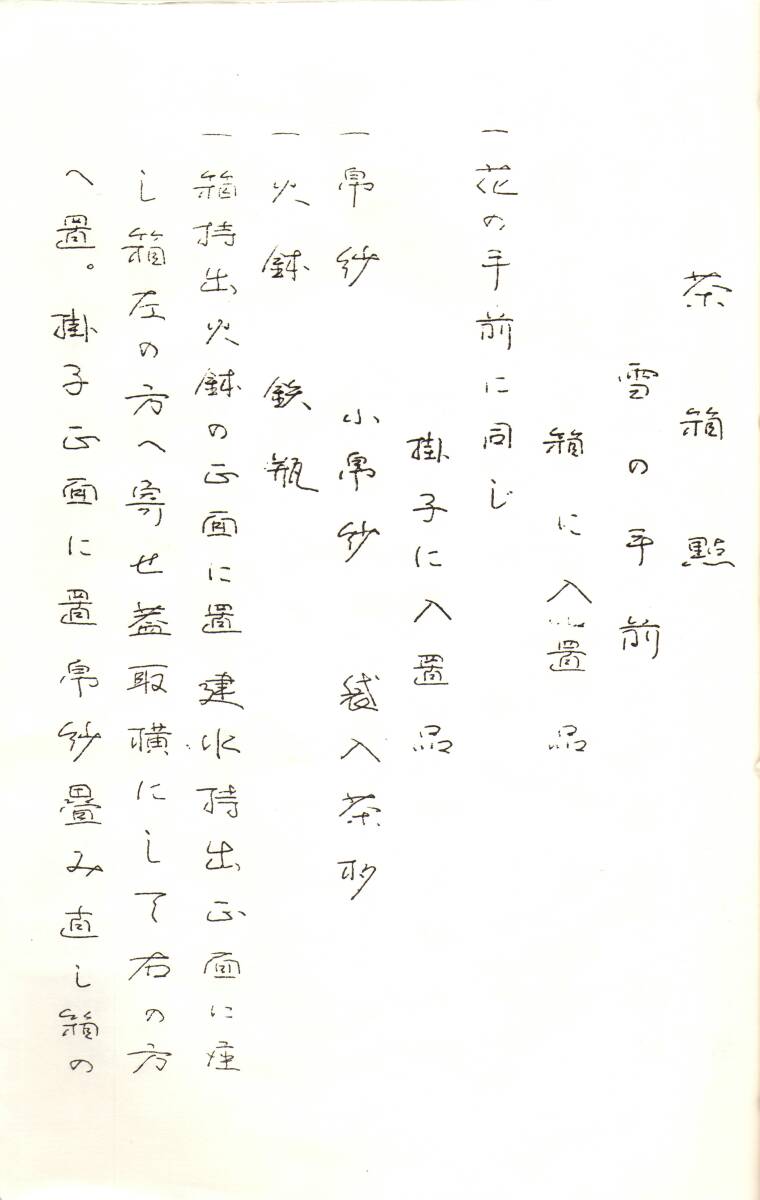 茶箱點
雪の手前
箱に入置品
一花の手前に同じ
掛子に入置品
一帛紗 小帛紗 袋入茶杓
一火鉢 鉄瓶
一箱持出火鉢の正面に置建水持出正面に座
し箱左の方へ寄せ蓋取横にして右の方
へ置。掛子正面に置帛紗畳み直し箱の